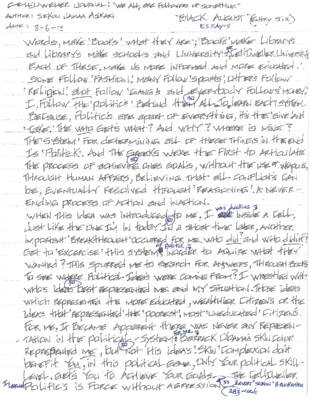 CF-NEIJWELLER JOURNAL: "WE ALL, ARE FOLLOWERS OF SOMETHING"
AUTHOR: SEKOU JAMAA ASKARI
"BLACK AUGUST" (ENTRY SIX)
DATE: 8-6-13
ESSAYS
WORDS, MAKE 'BOOKS' WHAT THEY ARE; 'BOOKS' MAKE LIBRARY'S
AND LIBRARY'S MAKE SCHOOLS AND UNIVERSITY'S
EACH OF THESE, MAKE US MORE INFORMED AND MORE EDUCATED.
SOME FOLLOW 'FASHION', MANY FOLLOW 'SPORTS', OTHERS FOLLOW
'RELIGION', FOLLOW 'GANGS' AND EVERYBODY FOLLOWS 'MONEY'.
I, FOLLOW THE 'POLITICS' BEHIND THEM ALL, TO LEARN EACH SYSTEM.
BECAUSE, POLITICS ARE APART OF EVERYTHING, IT'S THE 'GIVE AND
TAKE.' THE WHO GETS WHAT? AND WHY? WHERE IS MINE?
THE 'SYSTEM' FOR DETERMINING ALL OF THESE THINGS IN THE END
IS 'POLITICS'. AND THE GREEKS WERE THE FIRST TO ARTICULATE
THE PROCESS OF ACHIEVING ONES GOALS, WITHOUT THE USE OF
THROUGH HUMAN AFFAIRS, BELIEVING THAT ALL CONFLICTS CAN
BE, EVENTUALLY RESOLVED THROUGH 'REASONING'. A NEVER-
ENDING PROCESS OF ACTION AND INACTION.
WHEN THIS IDEA WAS INTRODUCED TO ME, I WAS INSIDE A CELL,
JUST LIKE THE ONE IN TODAY. IN A SHORT TIME LATER, ANOTHER
IMPORTANT 'BREAKTHROUGH' OCCURRED FOR ME, WHO DID AND WHO DIDN'T?
GET TO 'EXERCISE' THIS SYSTEM OF POLITICS IN ORDER TO AQUIRE WHAT THEY
WANTED? THIS SPURRED ME TO SEARCH FOR ANSWERS, THROUGH BOOKS
TO SEE WHERE POLITICAL IDEAS WERE COMING FROM? I WRESTLED WITH
WHO'S IDEAS BEST REPRESENTED ME AND MY SITUATION. THOSE IDEAS
WHICH REPRESENTED THE MORE EDUCATED, WEALTHIER CITIZENS OR THE
IDEAS THAT 'REPRESENTED' THE 'POOREST', MOST 'UNEDUCATED' CITIZENS.
FOR ME, IT BECAME APPARENT THERE WAS NEVER ANY REPRESEN-
TATION IN THE POLITICAL SYSTEM FOR ME. BARRACK OBAMA'S SKIN COLOR
REPRESENTED ME, BUT NOT HIS IDEAS! SKIN COMPLEXION DON'T
BENEFIT YOU, IN THIS POLITICAL GAME, ONLY YOUR POLITICAL SKILL-
LEVEL, GETS YOU TO ACHIEVE YOUR GOALS.
POLITICS IS FORCE WITHOUT AGGRESSION.